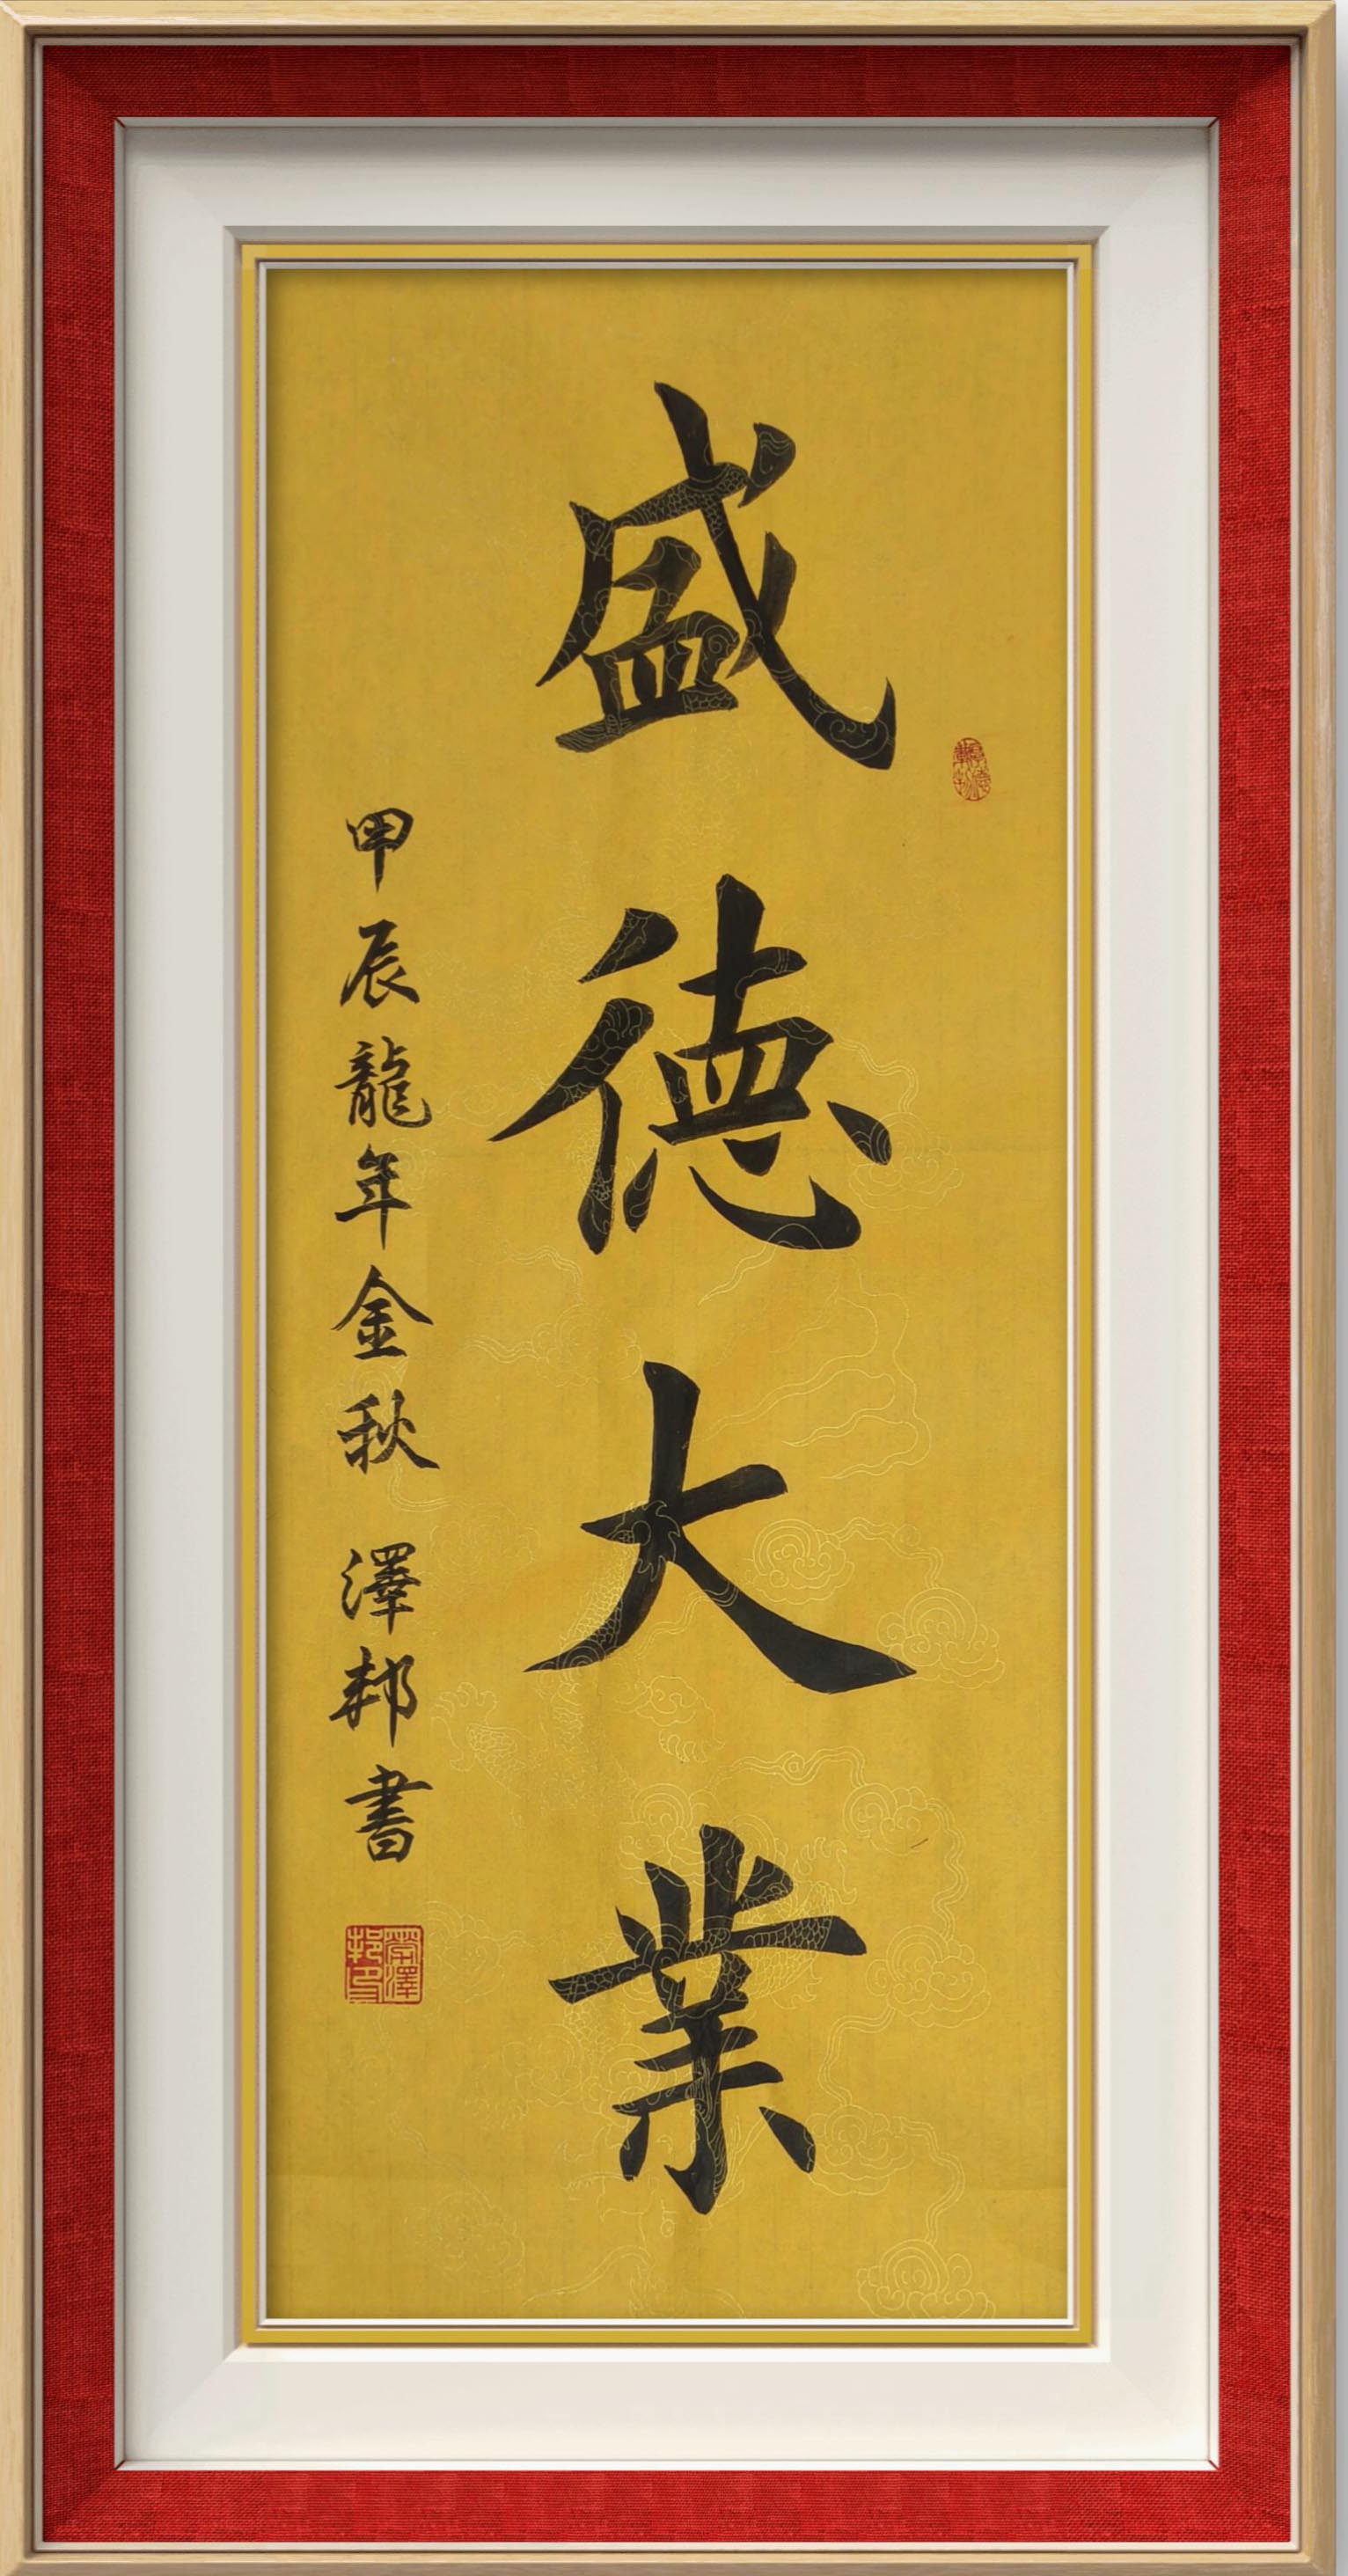 盛德大業
甲辰龍年金秋 澤邦書